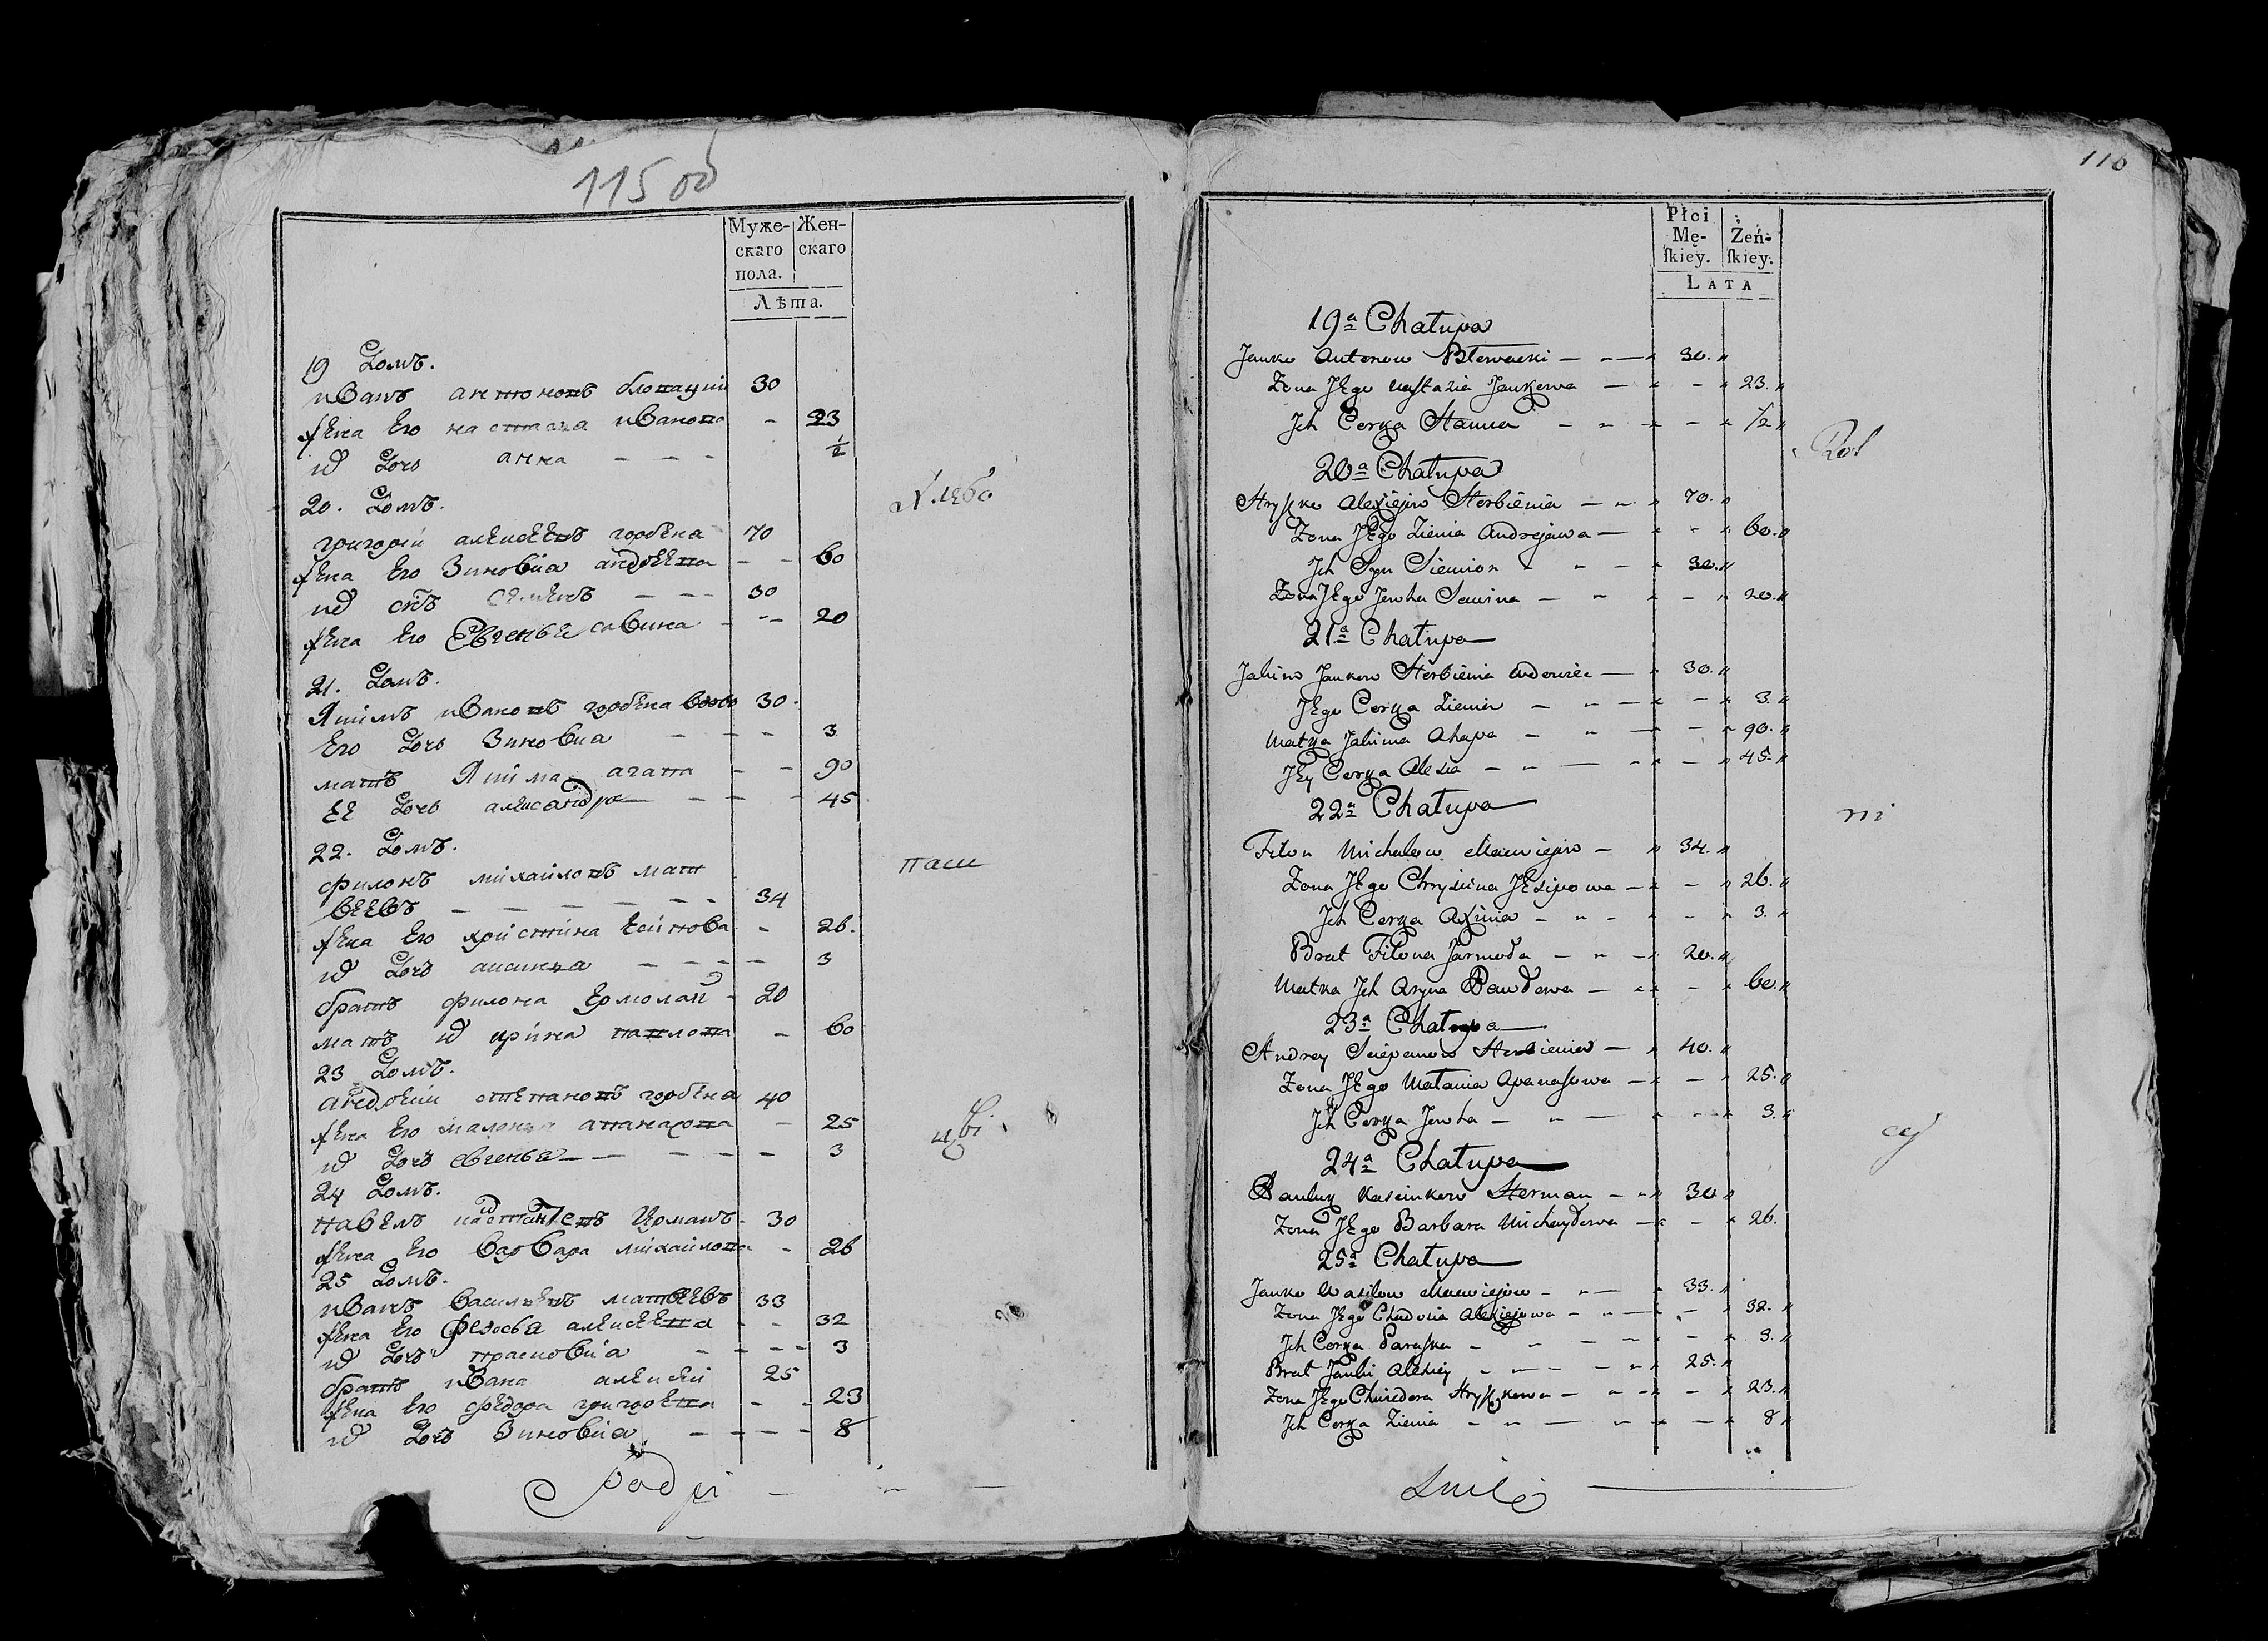 115 об
Муже-скаго пола. Жен-скаго
Лѣта.
19 Домъ.
иванъ антоновъ 30
жена его настасиа иванова - 23
их дочь анна - - - ½
20. Домъ.
Хлебо
григорий алексеевъ горбена 70
жена его Зиновиа андреева - - 60
их снъ семенъ - - - 30
жена его Евгенье савина - - - 20
21. Домъ.
Якимъ ивановъ горбена вдовъ 30.
его дочь Зиновиа - - - 3
мать Якима агапа - - 90
ее дочь александра - - - 45
22. Домъ.
паш
филонъ михаиловъ мат
веевъ - - - - - - 34
жена его христина есипова - 26.
их дочь аксинья - - - - 3
братъ филона Ермолай - 20
мать их ирина павлова - 60
23 Домъ.
андрей степановъ горбена 40
жена его маланья апанасова - 25
цы
их дочь евгенья - - - - - 3
24 Домъ.
павелъ Германъ - 30
жена его варвара михаилова - 26
25 Домъ.
иванъ васильевъ матвеевъ 33
жена его Федосья алексеева - - 32
их дочь прасковиа - - - - 3
братъ ивана алексей 25
жена его федора григорева - - 23
их дочь Зиновиа - - - - 8
116
Płci Mę-ſkiey. Żeń-ſkiey.
LATA
19a Chałupa
Janko Antonow - - - 30. "
Zona Jego Nastazia Jankowa - - 23. "
Jch Corka Hanna - - - - 1/2 "
Rol
20a Chałupa
Hryszko Alexiejow Horbienia - - 70. "
Zona Jego Zienia Andrejewa - - - 60. "
Jch Syn Siemion - - - 30. "
Zona Jego Jewha Sawina - - - 20. "
21a Chałupa
Jakim Jankow Horbienia wdowiec - 30. "
Jego Corka Zienia - - - - 3. "
Matka Jakima Ahapa - - - - 90. "
Jey Corka Alexia - - - - 45. "
22a Chałupa
ni
Filon Michałow Macwiejow - 34. "
Zona Jego Chrysćina Jesipowa - - 26. "
Jch Corka Axinia - - - - 3. "
Brat Filona Jarmoła - - - 20. "
Matka Jch Aryna Pawłowa - - - 60. "
23a Chałupa
Andrey Sciepanow Horbienia - 40. "
Zona Jego Małania Apanasowa - - 25. "
Jch Corka Jewha - - - - 3. "
cy
24a Chałupa
Pauluk Herman - - 30 "
Zona Jego Barbara Michayłowa - - 26.
25a Chałupa
Janko Wasilow Macwiejow - - - 33. "
Zona Jego Chwdosia Alexiejowa - - - 32. "
Jch Corka Paraska - - - - 3. "
Brat Janki Alexiey - - - - 25. "
Zona Jego Chwiedora Hryszkowa - - - 23. "
Jch Corka Zienia - - - - 8 "